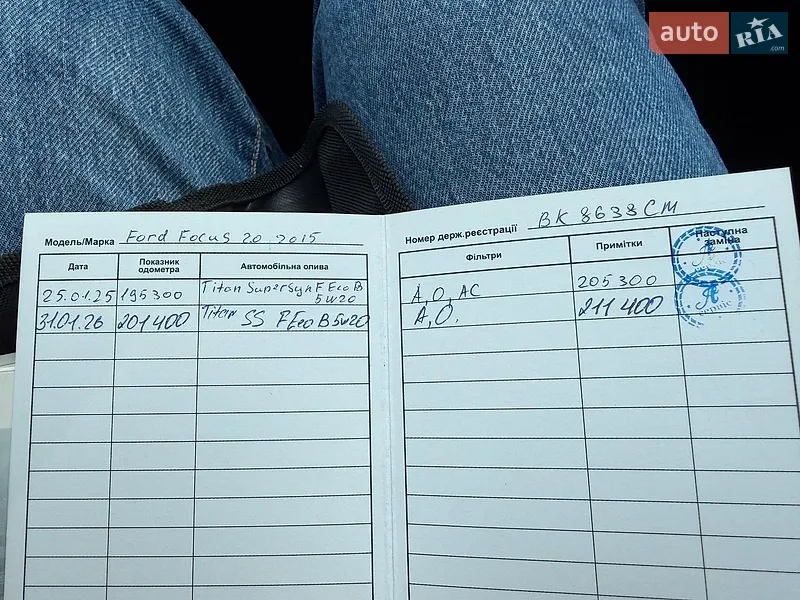 auto RIA .com
Модель/Марка Ford Focus 2.0 2015
Дата Показник одометра Автомобільна олива
25.01.25 195300 Titan SuperSyn F Eco B 5w20
31.01.26 201400 Titan SS F Eco B 5w20
Номер держ.реєстрації BK 8638 CM
Фільтри Примітки Наступна заміна
A, O, AC 205300
A, O. 211400
сервіс